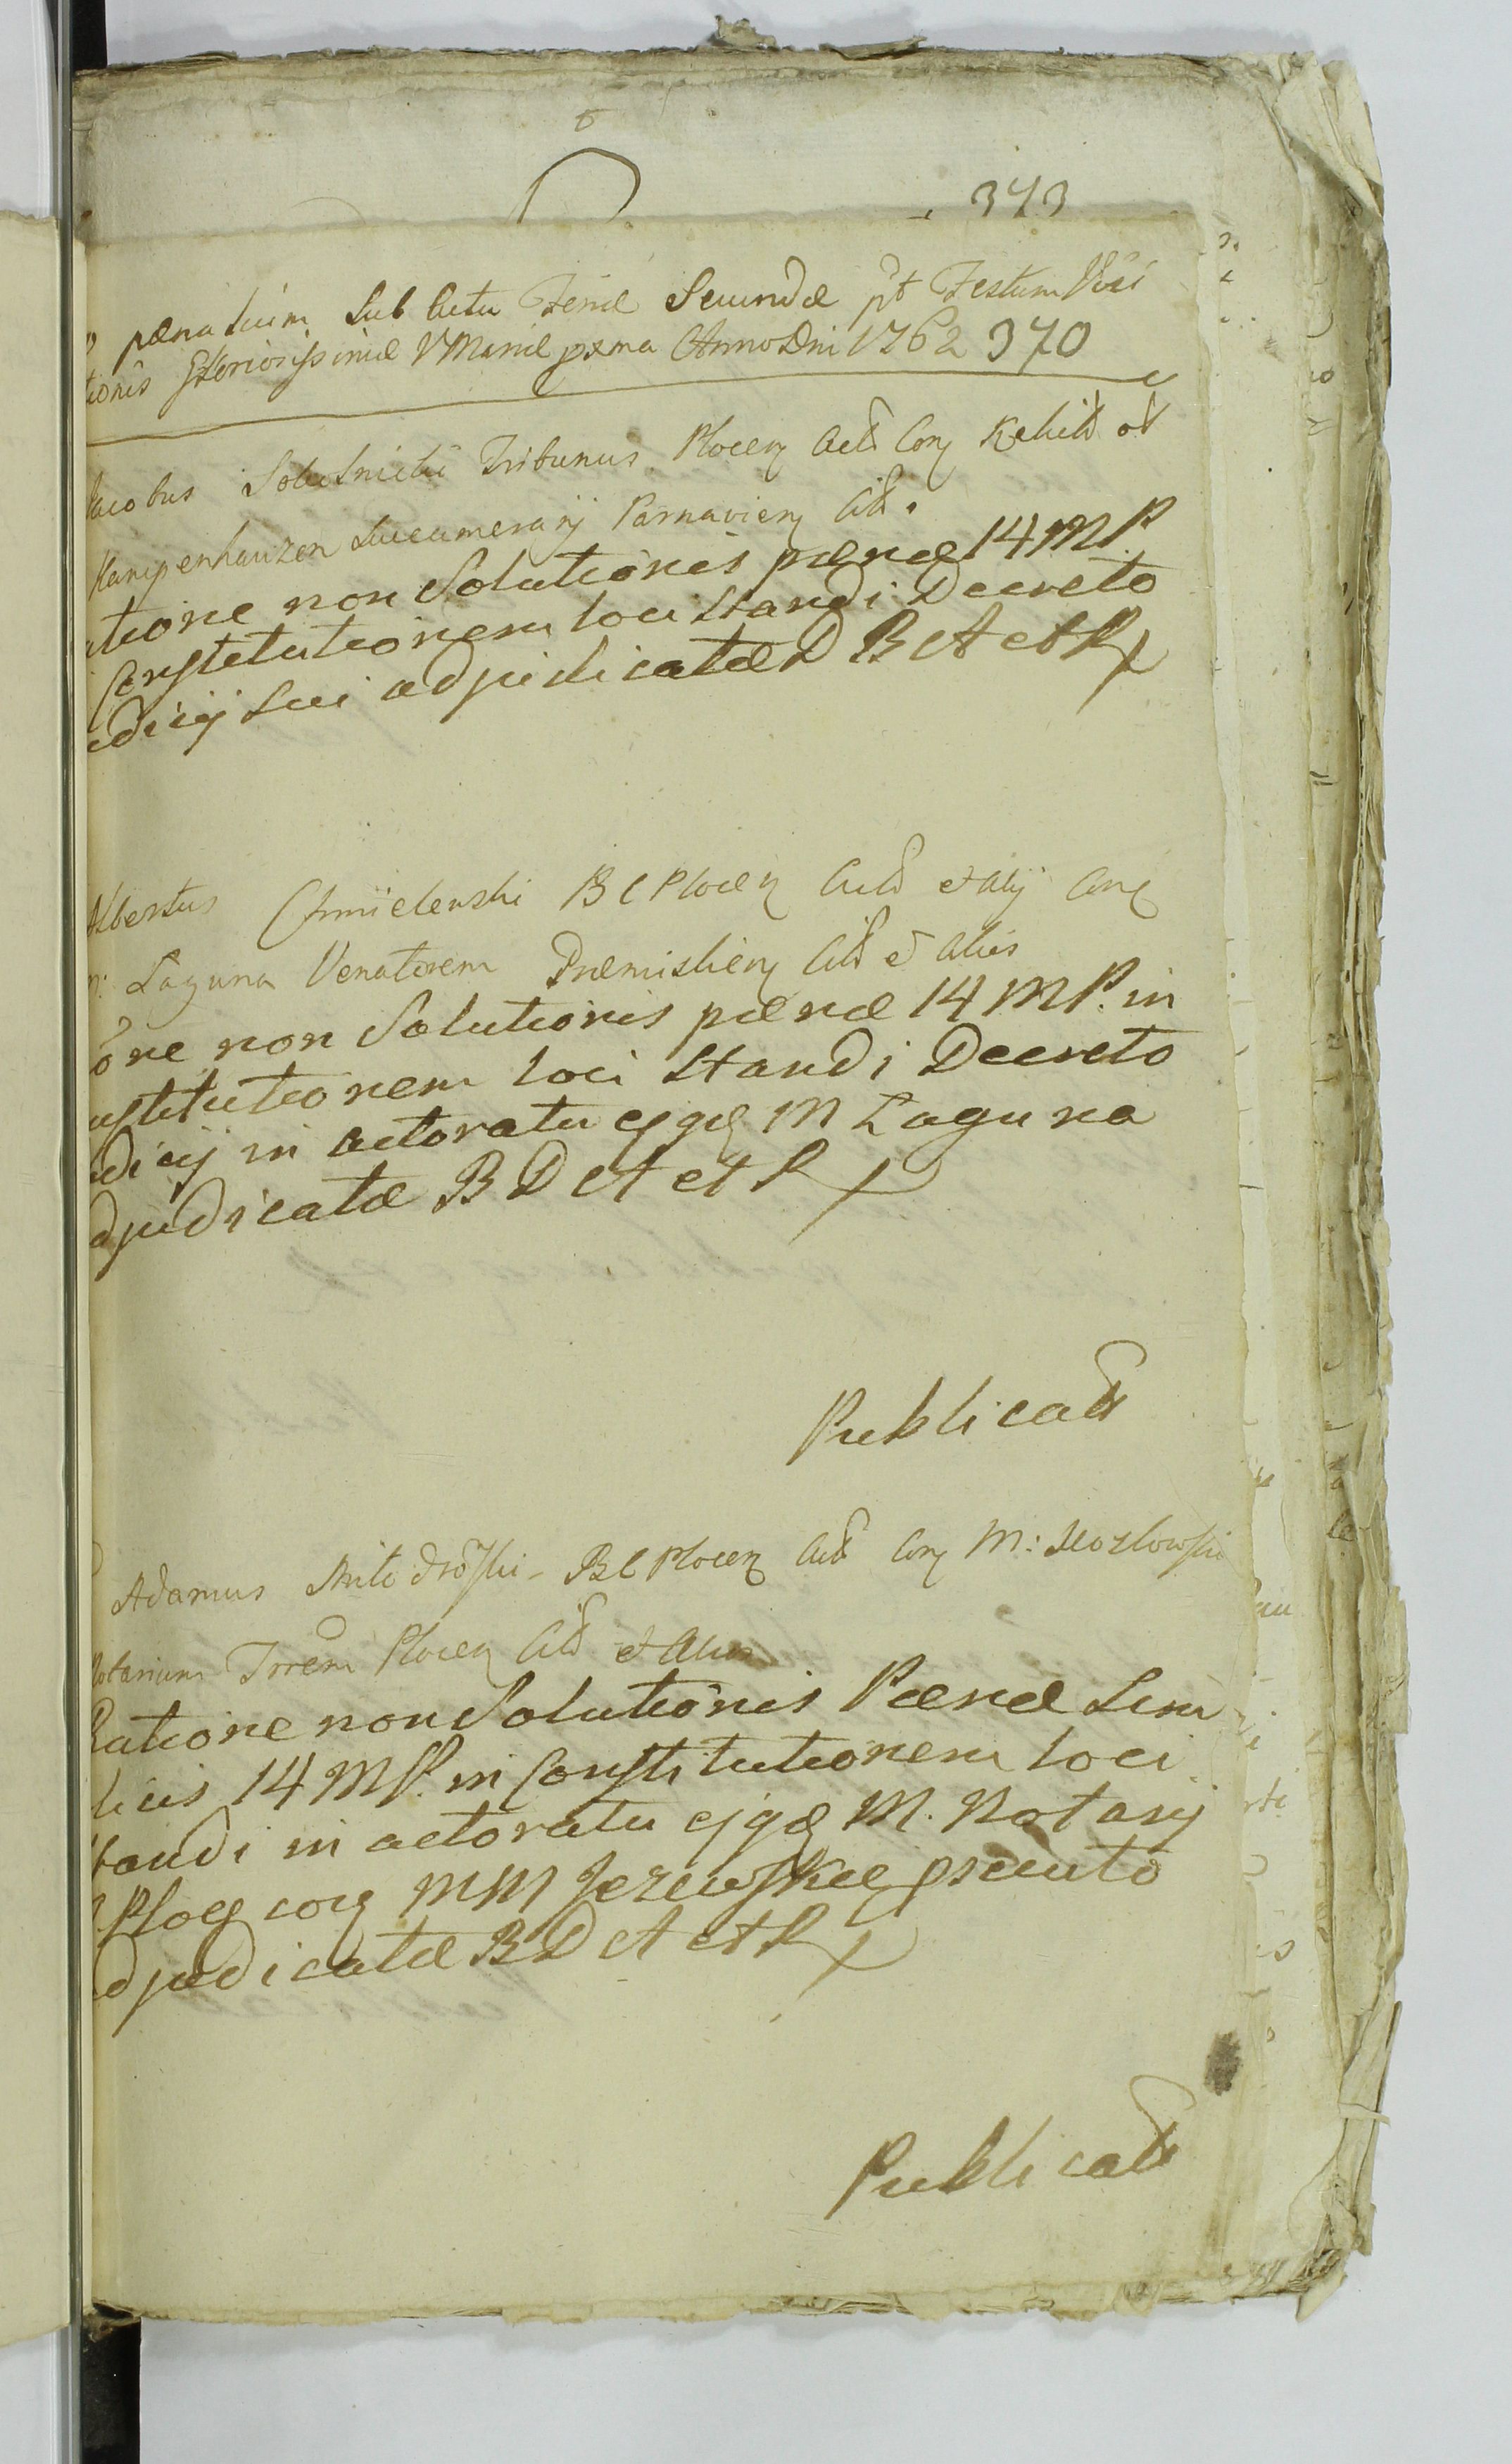 373
pænalium Sub Actu Feriæ Secundæ pt Festum Visi
tionis Gloriosissimæ V Mariæ pxma Anno Dni 1762 370
Jacobus Sobolnicki Tribunus Plocen Actt Con Kehild ot
Kampenhauzen Succamerarij Parnavien Citt.
atione non Solutionis pænæ 14 MP.
Constitutionem loci Standi Decreto
udicij Sui adjudicatæ D B A et P
Albertus Chmielewski BC Plocen Actt et Alij Con
M: Laguna Venatorem Præmislien Citt et Aliis
one non Solutionis pænæ 14 MP. in
nstitutionem loci Standi Decreto
udicij in actoratu ejgd M Laguna
djudicatæ B D A et P
Publicatt
Adamus BC Plocen Actt Con M: Kozlowski
Notarium Trrem Plocen Citt et Alios
Ratione non Solutionis Pænæ Sim
licis 14 MP. in Constitutionem loci
Standi in actoratu ejgd M. Notarij
Ploc con MM Jezewskie pscuto
djudicatæ B D A et P
Publicatt